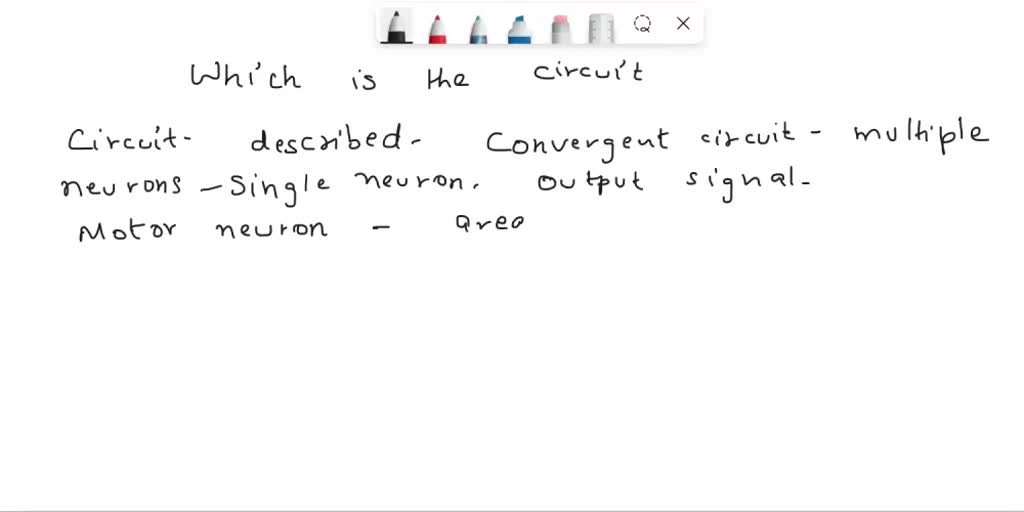 Which is the circuit
Circuit- described- Convergent circuit - multiple
neurons - Single neuron. output signal-
Motor neuron - area